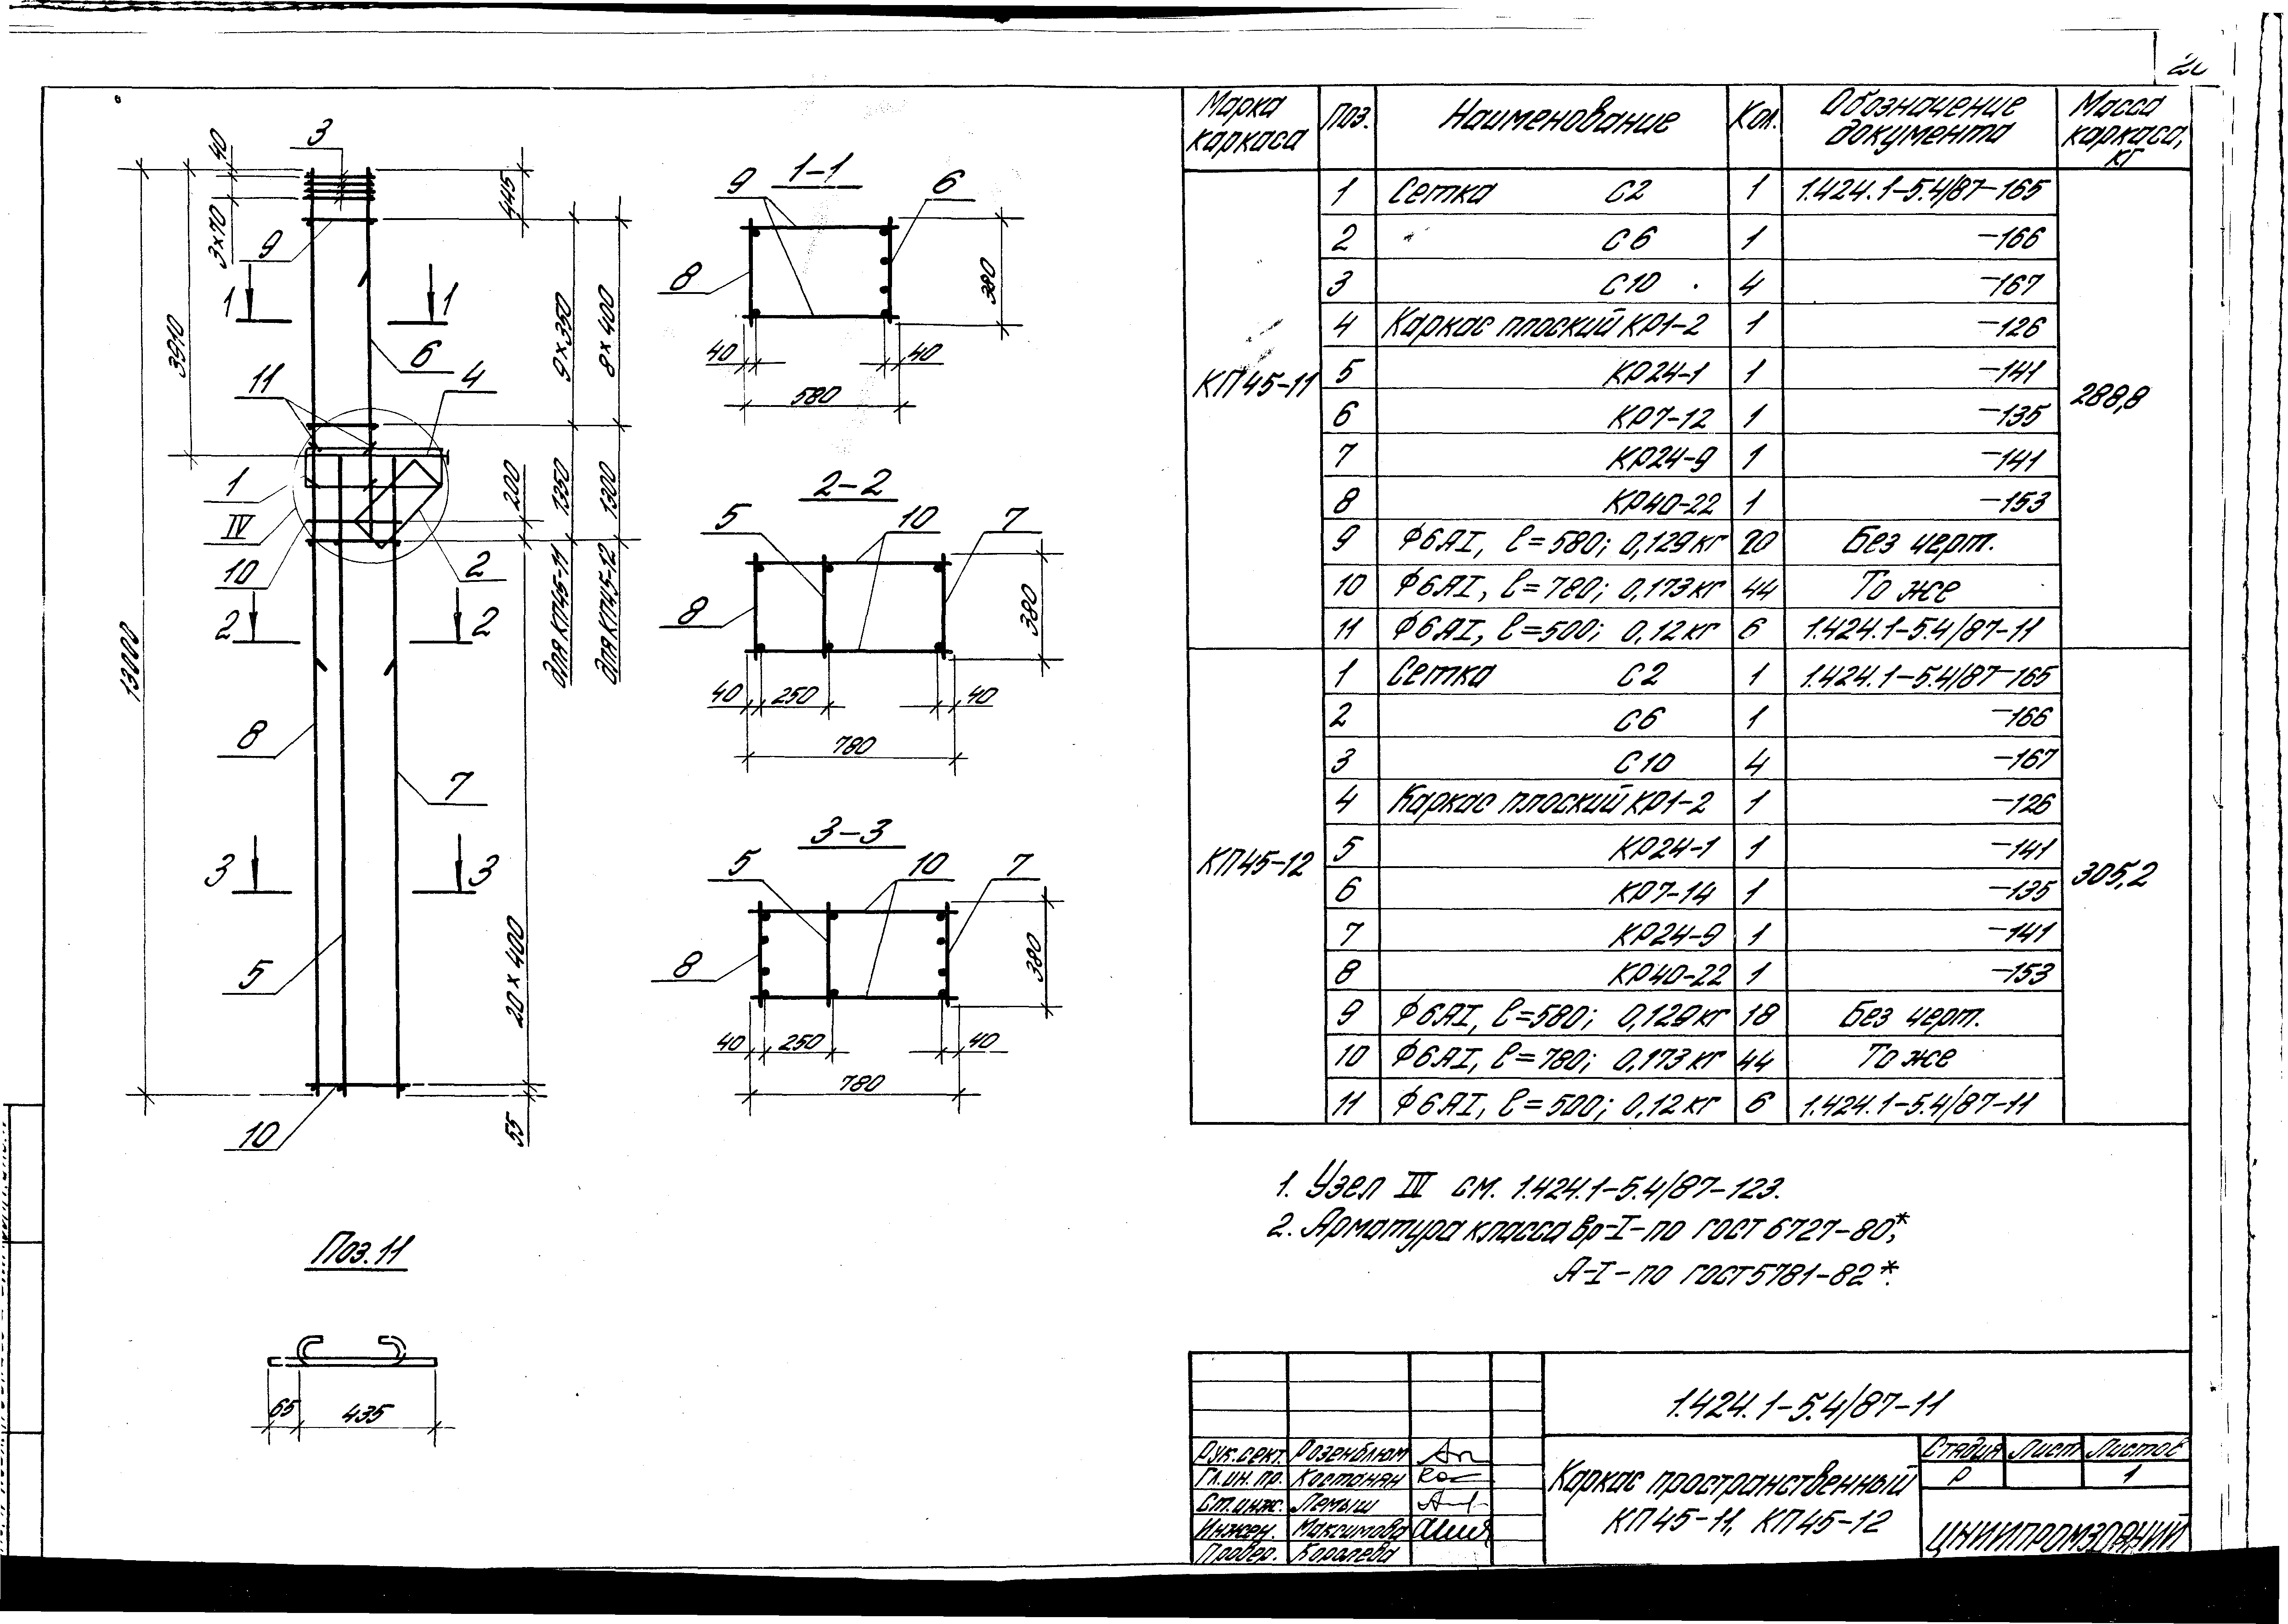 Марка каркаса | Поз. | Наименование | Кол. | Обозначение документа | Масса каркаса, кг
КП45-11 | 288,8
1 | Сетка С2 | 1 | 1.424.1-5.4/87-165
2 | С6 | 1 | -166
3 | С10 | 4 | -167
4 | Каркас плоский КР1-2 | 1 | -126
5 | КР24-1 | 1 | -141
6 | КР7-12 | 1 | -135
7 | КР24-9 | 1 | -141
8 | КР40-22 | 1 | -153
9 | Ф6АI, ℓ=580; 0,129кг | 20 | Без черт.
10 | Ф6АI, ℓ=780; 0,173кг | 44 | То же
11 | Ф6АI, ℓ=500; 0,12кг | 6 | 1.424.1-5.4/87-11
КП45-12 | 305,2
1 | Сетка С2 | 1 | 1.424.1-5.4/87-165
2 | С6 | 1 | -166
3 | С10 | 4 | -167
4 | Каркас плоский КР1-2 | 1 | -126
5 | КР24-1 | 1 | -141
6 | КР7-14 | 1 | -135
7 | КР24-9 | 1 | -141
8 | КР40-22 | 1 | -153
9 | Ф6АI, ℓ=580; 0,129кг | 18 | Без черт.
10 | Ф6АI, ℓ=780; 0,173кг | 44 | То же
11 | Ф6АI, ℓ=500; 0,12кг | 6 | 1.424.1-5.4/87-11
3
40
3×70
445
9
1 1
3910
9×350
8×400
6
11
4
1
IV
200
1350
1300
10
2
для КП45-11
для КП45-12
2 2
13000
8
7
3 3
5
20×400
55
10
1-1
9 6
8
380
40 40
580
2-2
5 10 7
8
380
40 250 40
780
3-3
5 10 7
8
380
40 250 40
780
Поз.11
65 435
1. Узел IV см. 1.424.1-5.4/87-123.
2. Арматура класса Вр-I-по ГОСТ 6727-80*;
А-I-по ГОСТ 5781-82*.
1.424.1-5.4/87-11
Рук.сект. Розенблюм
Гл.ин.пр. Костанян
Ст.инж. Лемыш
Инжен. Максимова
Провер. Королева
Каркас пространственный
КП45-11, КП45-12
Стадия Лист Листов
Р 1
ЦНИИПРОМЗДАНИЙ